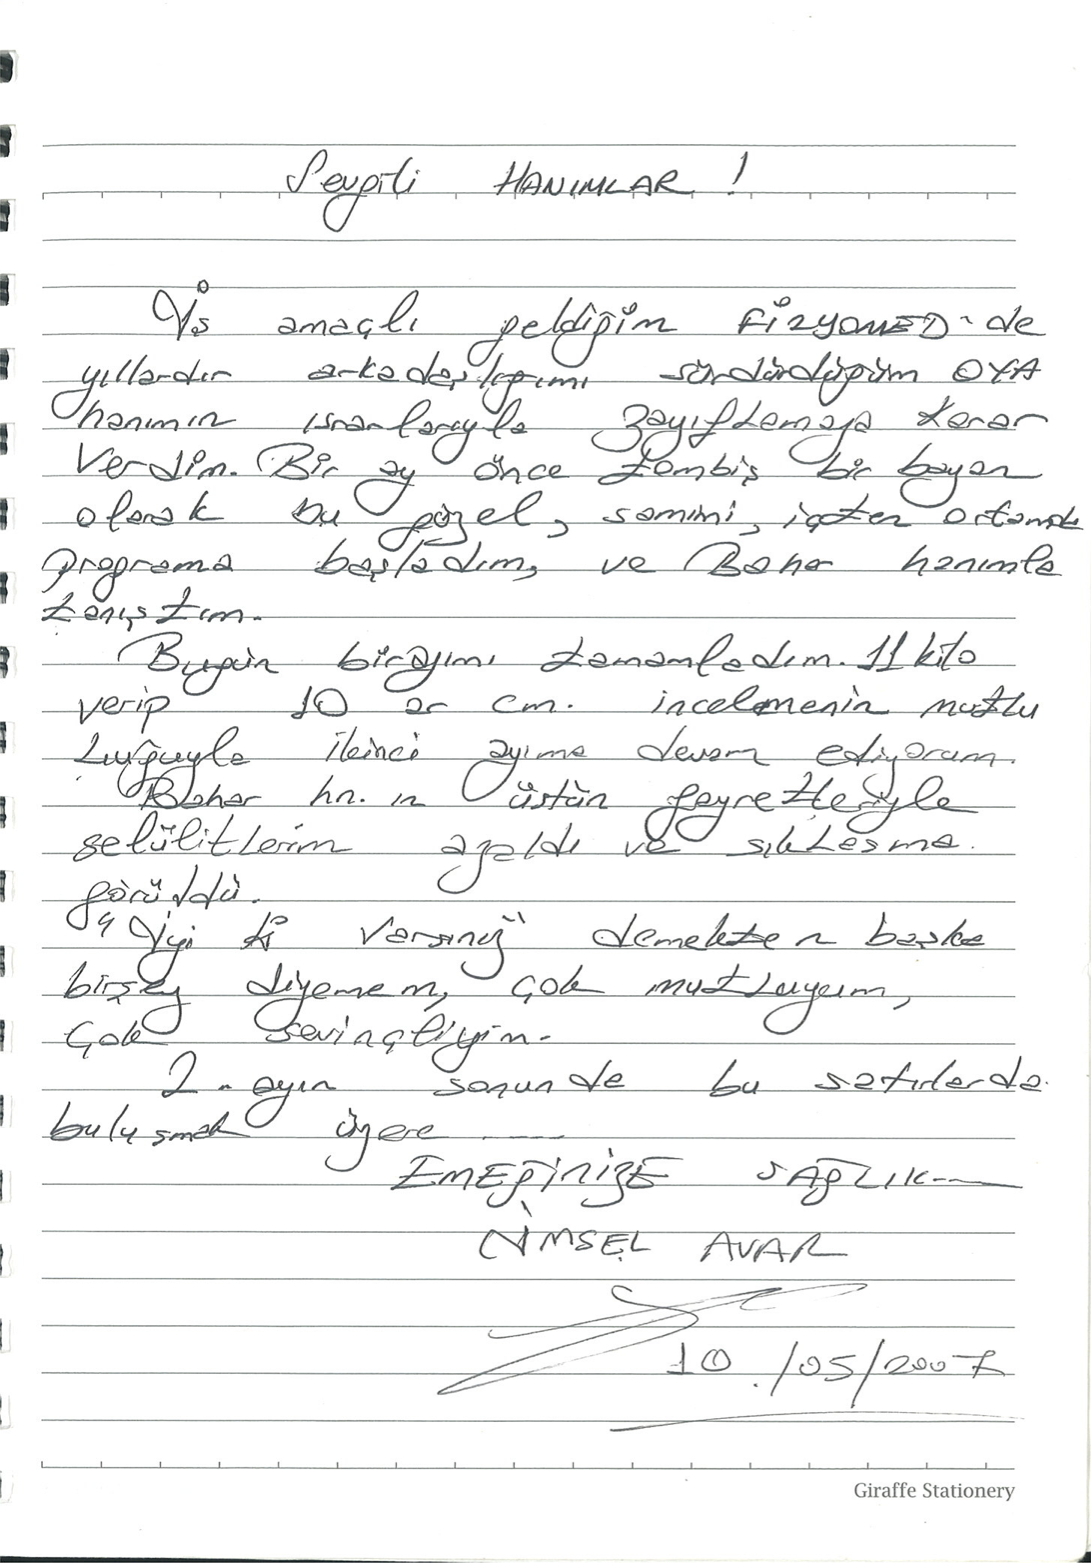 Sevgili HANIMLAR !
İş amaçlı geldiğim FİZYOMED-de
yıllardır arkadaşlığımı sürdürdüğüm OYA
hanımın ısrarlarıyla zayıflamaya karar
verdim. Bir ay önce tombiş bir bayan
olarak bu güzel, samimi, içten ortamda
programa başladım, ve Bahar hanımla
tanıştım.
Bugün birayımı tamamladım. 11 kilo
verip 10 ar cm. incelmenin mutlu
luğuyla ikinci ayıma devam ediyorum.
Bahar hn. ın üstün gayretleriyle
selülitlerim azaldı ve sıkılaşma
görüldü.
"İyi ki varsınız" demekten başka
birşey diyemem, çok mutluyum,
Çok sevinçliyim.
2. ayın sonunda bu satırlarda
buluşmak üzere ----
EMEĞİNİZE SAĞLIK---
NİMSEL AVAR
10 /05/2007
Giraffe Stationery